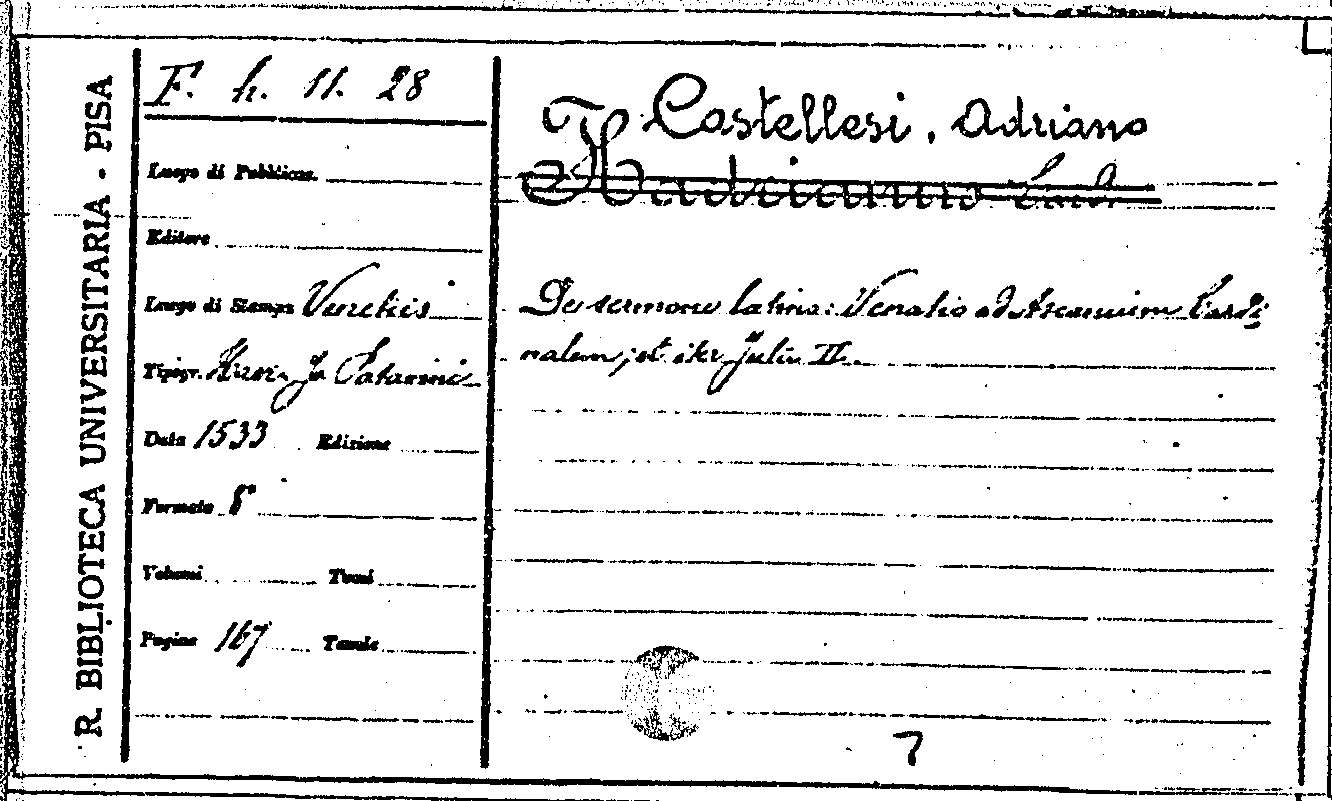 R. BIBLIOTECA UNIVERSITARIA - PISA
F. h. 11. 28
Luogo di Pubblicaz.
Editore
Luogo di Stampa Venetiis
Tipogr. Patavini
Data 1533 Edizione
Formato 8°
Volumi Tomi
Pagine 167 Tavole
Castellesi, Adriano
Hadrianus Card.
De sermone latino: Venatio ad Ascanium Cardi
nalem, et iter Julii II.
7